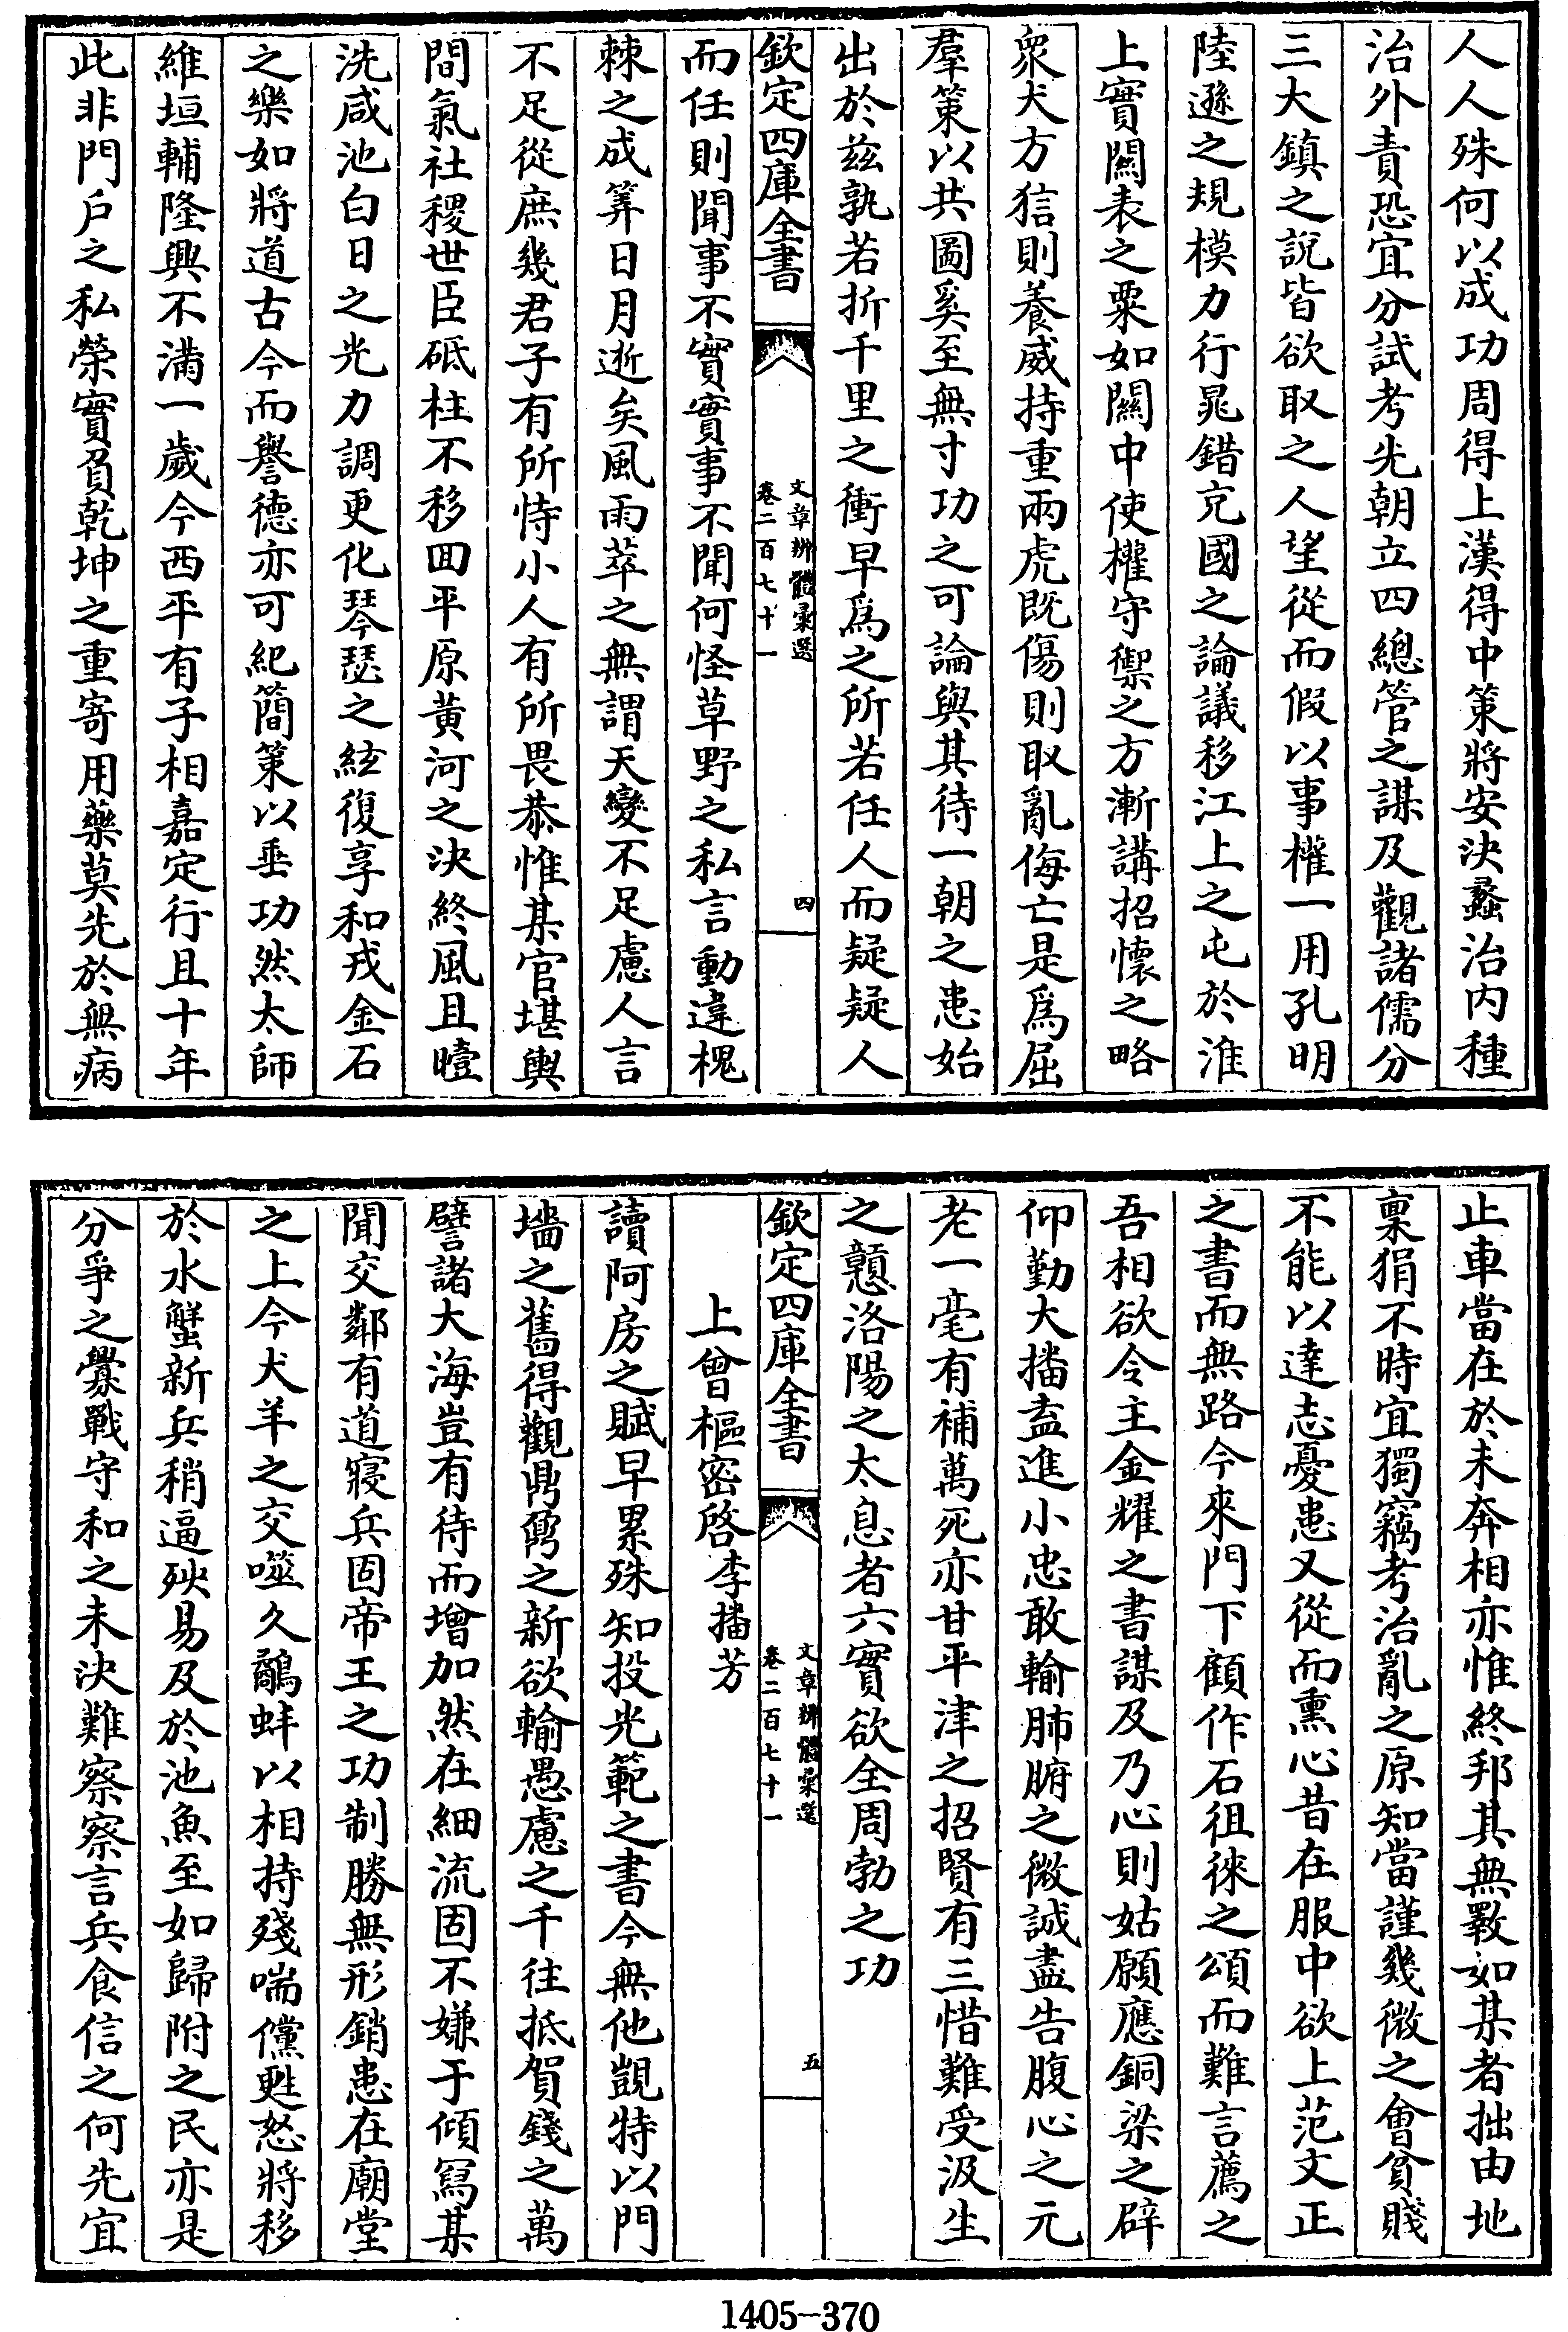 人人殊何以成功周得上漢得中策將安決蠡治内種
治外責恐宜分試考先朝立四總管之謀及觀諸儒分
三大鎮之說皆欲取之人望從而假以事權一用孔明
陸遜之規模力行晁錯充國之論議移江上之屯於淮
上實闗表之粟如闗中使權守禦之方漸講招懷之略
衆犬方狺則養威持重兩虎既傷則取亂侮亡是爲屈
羣策以共圖奚至無寸功之可論與其待一朝之患始
出於兹孰若折千里之衝早爲之所若任人而疑疑人
欽定四庫全書
文章辨體彚選
卷二百七十一
四
而任則聞事不實實事不聞何怪草野之私言動違槐
棘之成筭日月逝矣風雨萃之無謂天變不足慮人言
不足從庶幾君子有所恃小人有所畏恭惟某官堪輿
間氣社稷世臣砥柱不移囬平原黄河之決終風且曀
洗咸池白日之光力調更化琴瑟之絃復享和戎金石
之樂如將道古今而譽德亦可紀簡策以垂功然太師
維垣輔隆興不滿一歲今西平有子相嘉定行且十年
此非門户之私榮實負乾坤之重寄用藥莫先於無病
止車當在於未奔相亦惟終邦其無斁如某者拙由地
稟狷不時宜獨竊考治亂之原知當謹幾微之會貧賤
不能以達志憂患又從而熏心昔在服中欲上范文正
之書而無路今來門下顧作石徂徠之頌而難言薦之
吾相欲令主金耀之書謀及乃心則姑願應銅梁之辟
仰勤大播盍進小忠敢輸肺腑之微誠盡告腹心之元
老一毫有補萬死亦甘平津之招賢有三惜難受汲生
之戇洛陽之太息者六實欲全周勃之功
欽定四庫全書
文章辨體彚選
卷二百七十一
五
上曾樞密啓李播芳
讀阿房之賦早累殊知投光範之書今無他覬特以門
墻之舊得觀鼎鼐之新欲輸愚慮之千往抵賀錢之萬
譬諸大海豈有待而增加然在細流固不嫌于傾寫某
聞交鄰有道寢兵固帝王之功制勝無形銷患在廟堂
之上今犬羊之交噬久鷸蚌以相持殘喘儻甦怒將移
於水蟹新兵稍逼殃易及於池魚至如歸附之民亦是
分爭之釁戰守和之未決難察察言兵食信之何先宜
1405-370